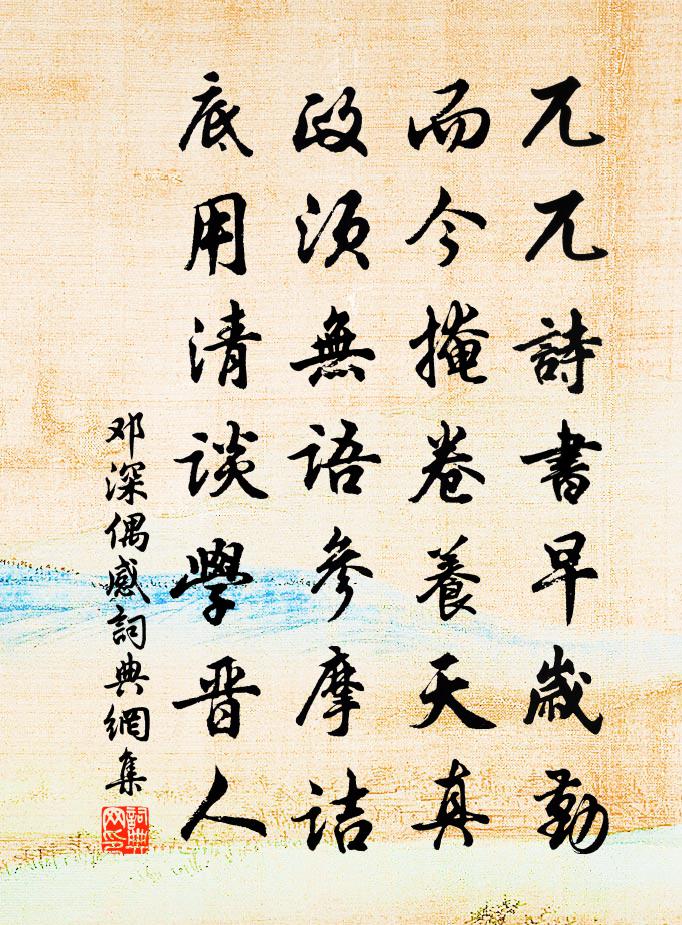 兀兀詩書早歲勤
而今掩卷養天真
政須無語參摩詰
底用清談學晋人
邓深偶感詞典網集
詞典网印